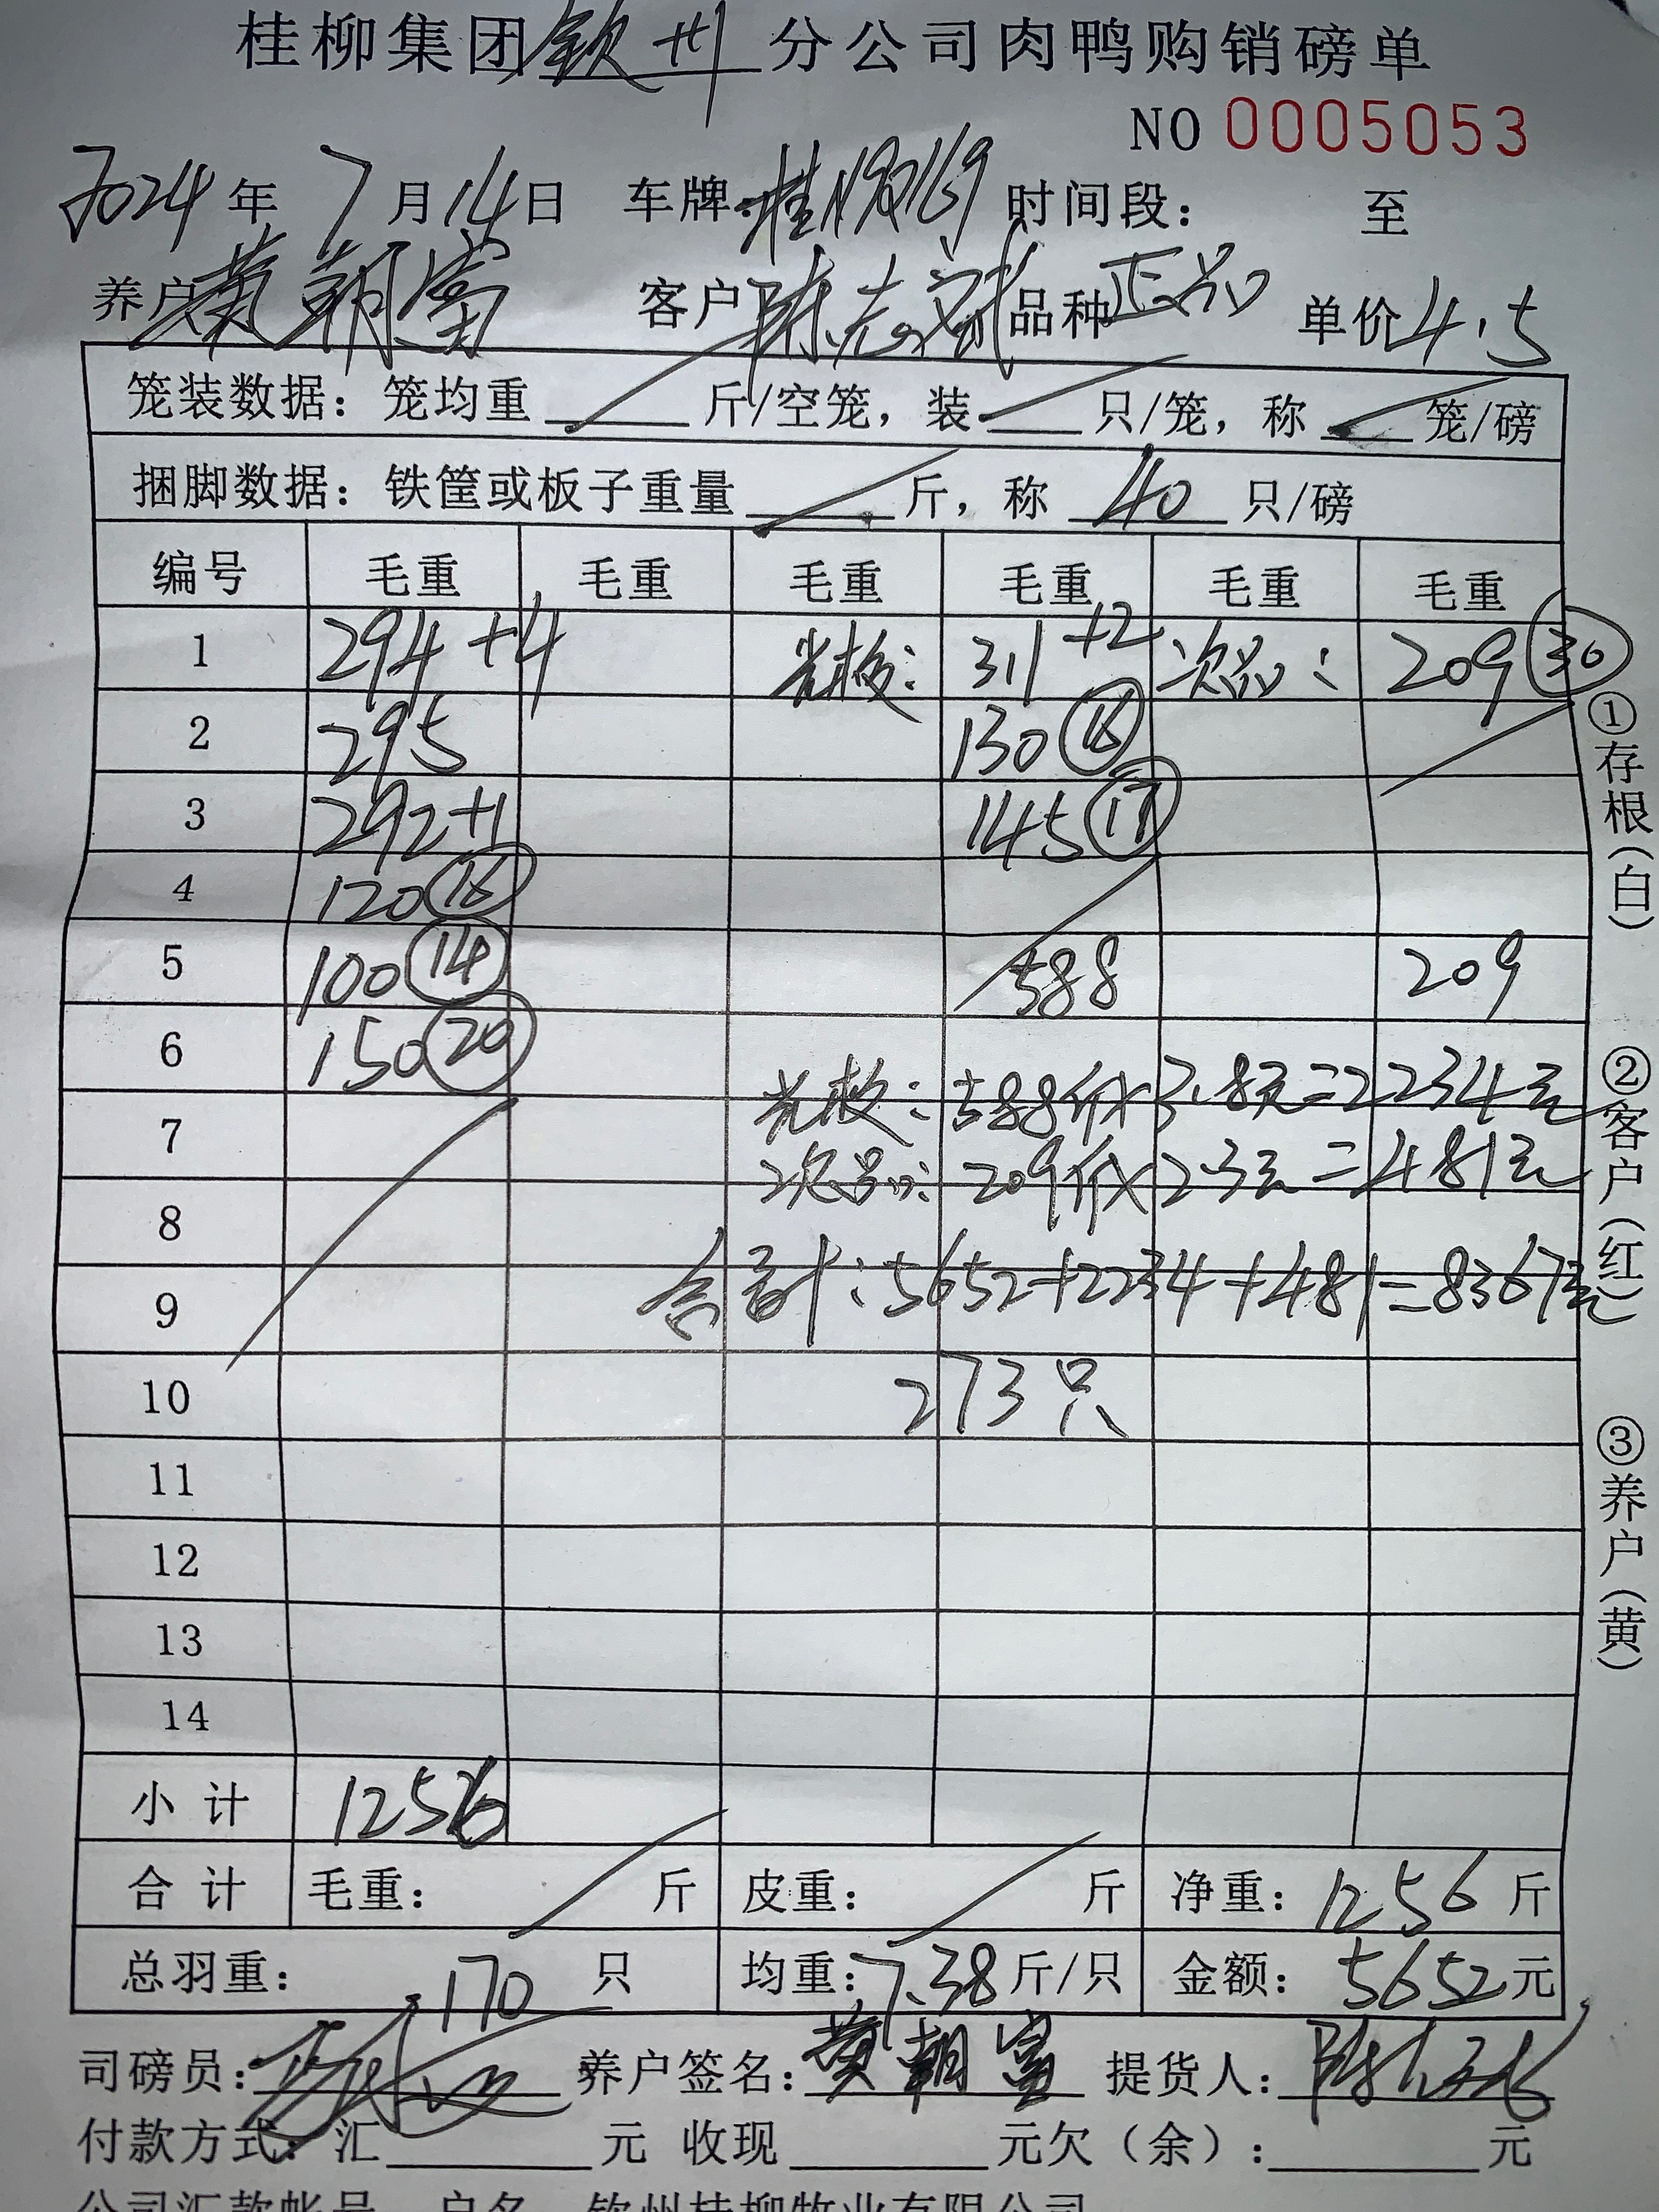 桂柳集团钦州分公司肉鸭购销磅单
NO 0005053
2024年7月14日 车牌: 时间段: 至
养户黄朝富 客户陈志斌 品种正品 单价4.5
笼装数据: 笼均重 斤/空笼, 装 只/笼, 称 笼/磅
捆脚数据: 铁筐或板子重量 斤, 称 40 只/磅
编号 毛重 毛重 毛重 毛重 毛重 毛重
1 294+4 311+2 次品: 209 30
2 295 130
3 292+1 145 17
4 120 16
5 100 14 588 209
6 150 20
7 588斤×3.8元=2234元
8 次品: 209斤×2.3元=481元
9 合计:5652+2234+481=8367元
10 273只
11
12
13
14
小计 1256
合计 毛重: 斤 皮重: 斤 净重: 1256斤
总羽重: 170 只 均重: 7.38斤/只 金额: 5652元
司磅员: 养户签名: 黄朝富 提货人:
付款方式: 汇 元 收现 元欠(余): 元
公司汇款帐号 户名 钦州桂柳牧业有限公司
①存根(白)
②客户(红)
③养户(黄)